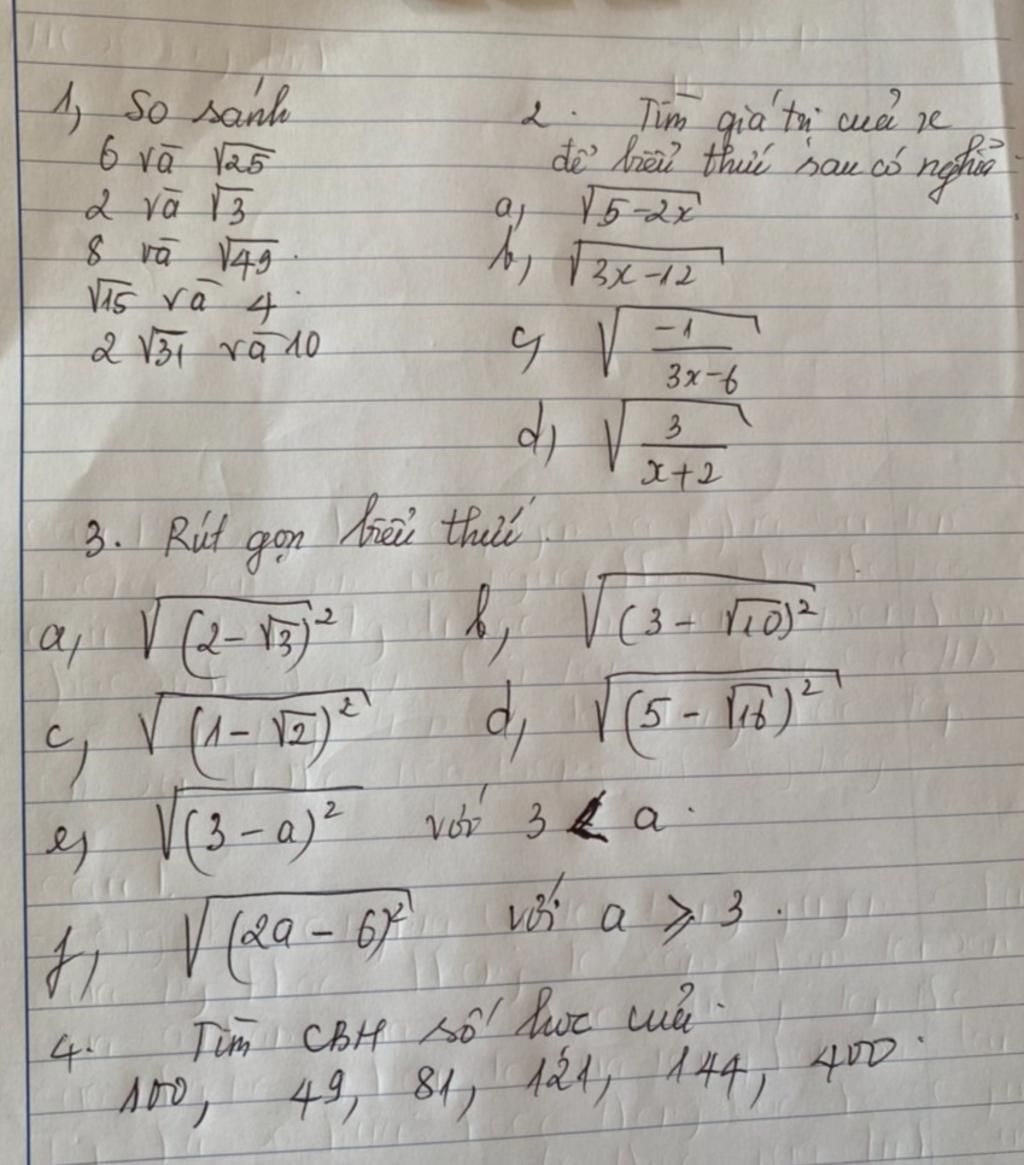 1, So sánh
6 và √25
2 và √3
8 và √49.
√15 và 4.
2√31 và 10
2. Tìm giá trị của x
để biểu thức sau có nghĩa
a, √(5-2x)
b, √(3x-12)
c, √(-1/(3x-6))
d, √(3/(x+2))
3. Rút gọn biểu thức.
a, √((2-√3)²) b, √((3-√10)²)
c, √((1-√2)²) d, √((5-√16)²)
e, √((3-a)²) với 3 < a.
f, √((2a-6)²) với a ≥ 3.
4. Tìm CBH số học của.
100, 49, 81, 121, 144, 400.